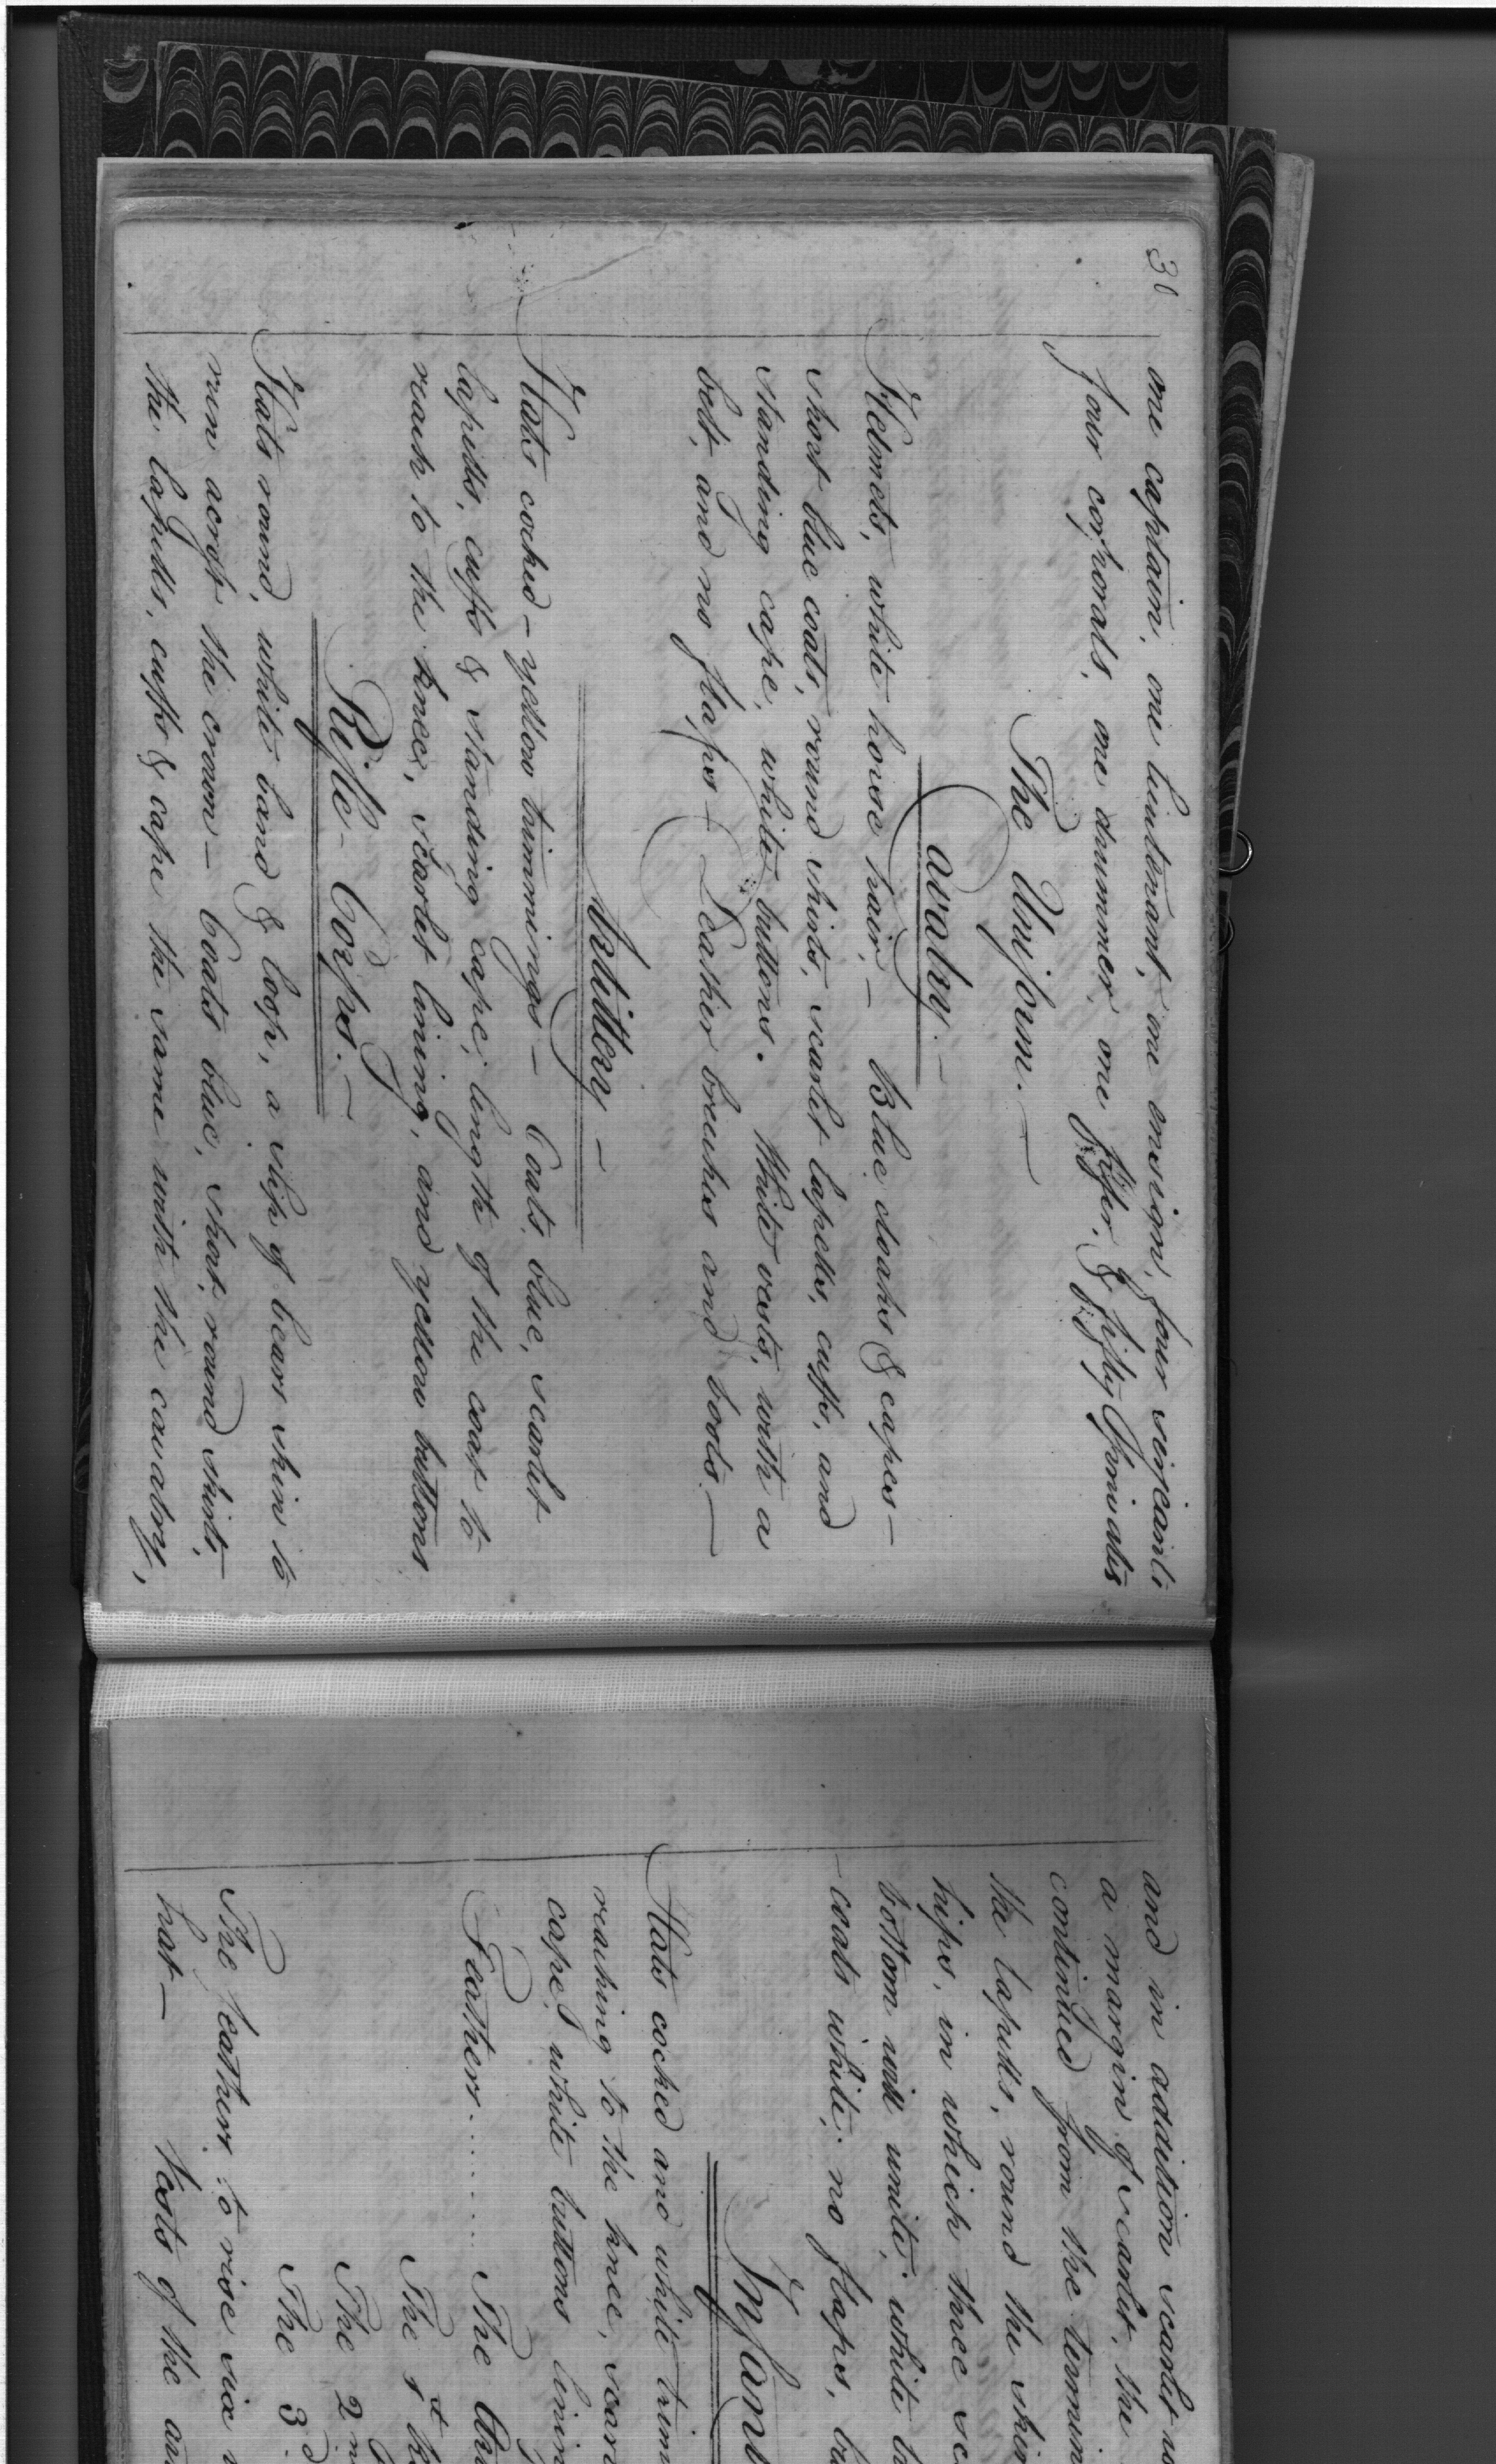 30
one captain, one lieutenant, one ensign, four serjeants
four corporals, one drummer one fifer, & fifty privates
The Uniform.—
Cavalry.—
Helmets, white horse hair,— Blue cloakes & capes—
short blue coats, round skirts, scarlet lapells, cuffs, and
standing cape, white buttons. White vests, with a
belt, and no flaps— Leather breeches and boots.—
Artillery—
Hats cocked— yellow trimmings— Coats, blue, scarlet
lapells, cuffs & standing cape; length of the coat to
reach to the knee, scarlet lining, and yellow buttons
Rifle-Corps.—
Hats round, white band & loop, a slip of bear skin to
run acrosst the crown— Coats blue, short, round skirts,
the lapells, cuffs & cape the same with the cavalry,
and in addition scarlet
a margin of scarlet, the
continued from the
the lapells, round the
hips, in which three
bottom will unite; white
coats white; no flaps,
Hats cocked and white
reaching to the knee,
cape, white buttons
Feathers...... The
The 1st
The 2
The 3d
The feathers to rise six
hat— Vests of the